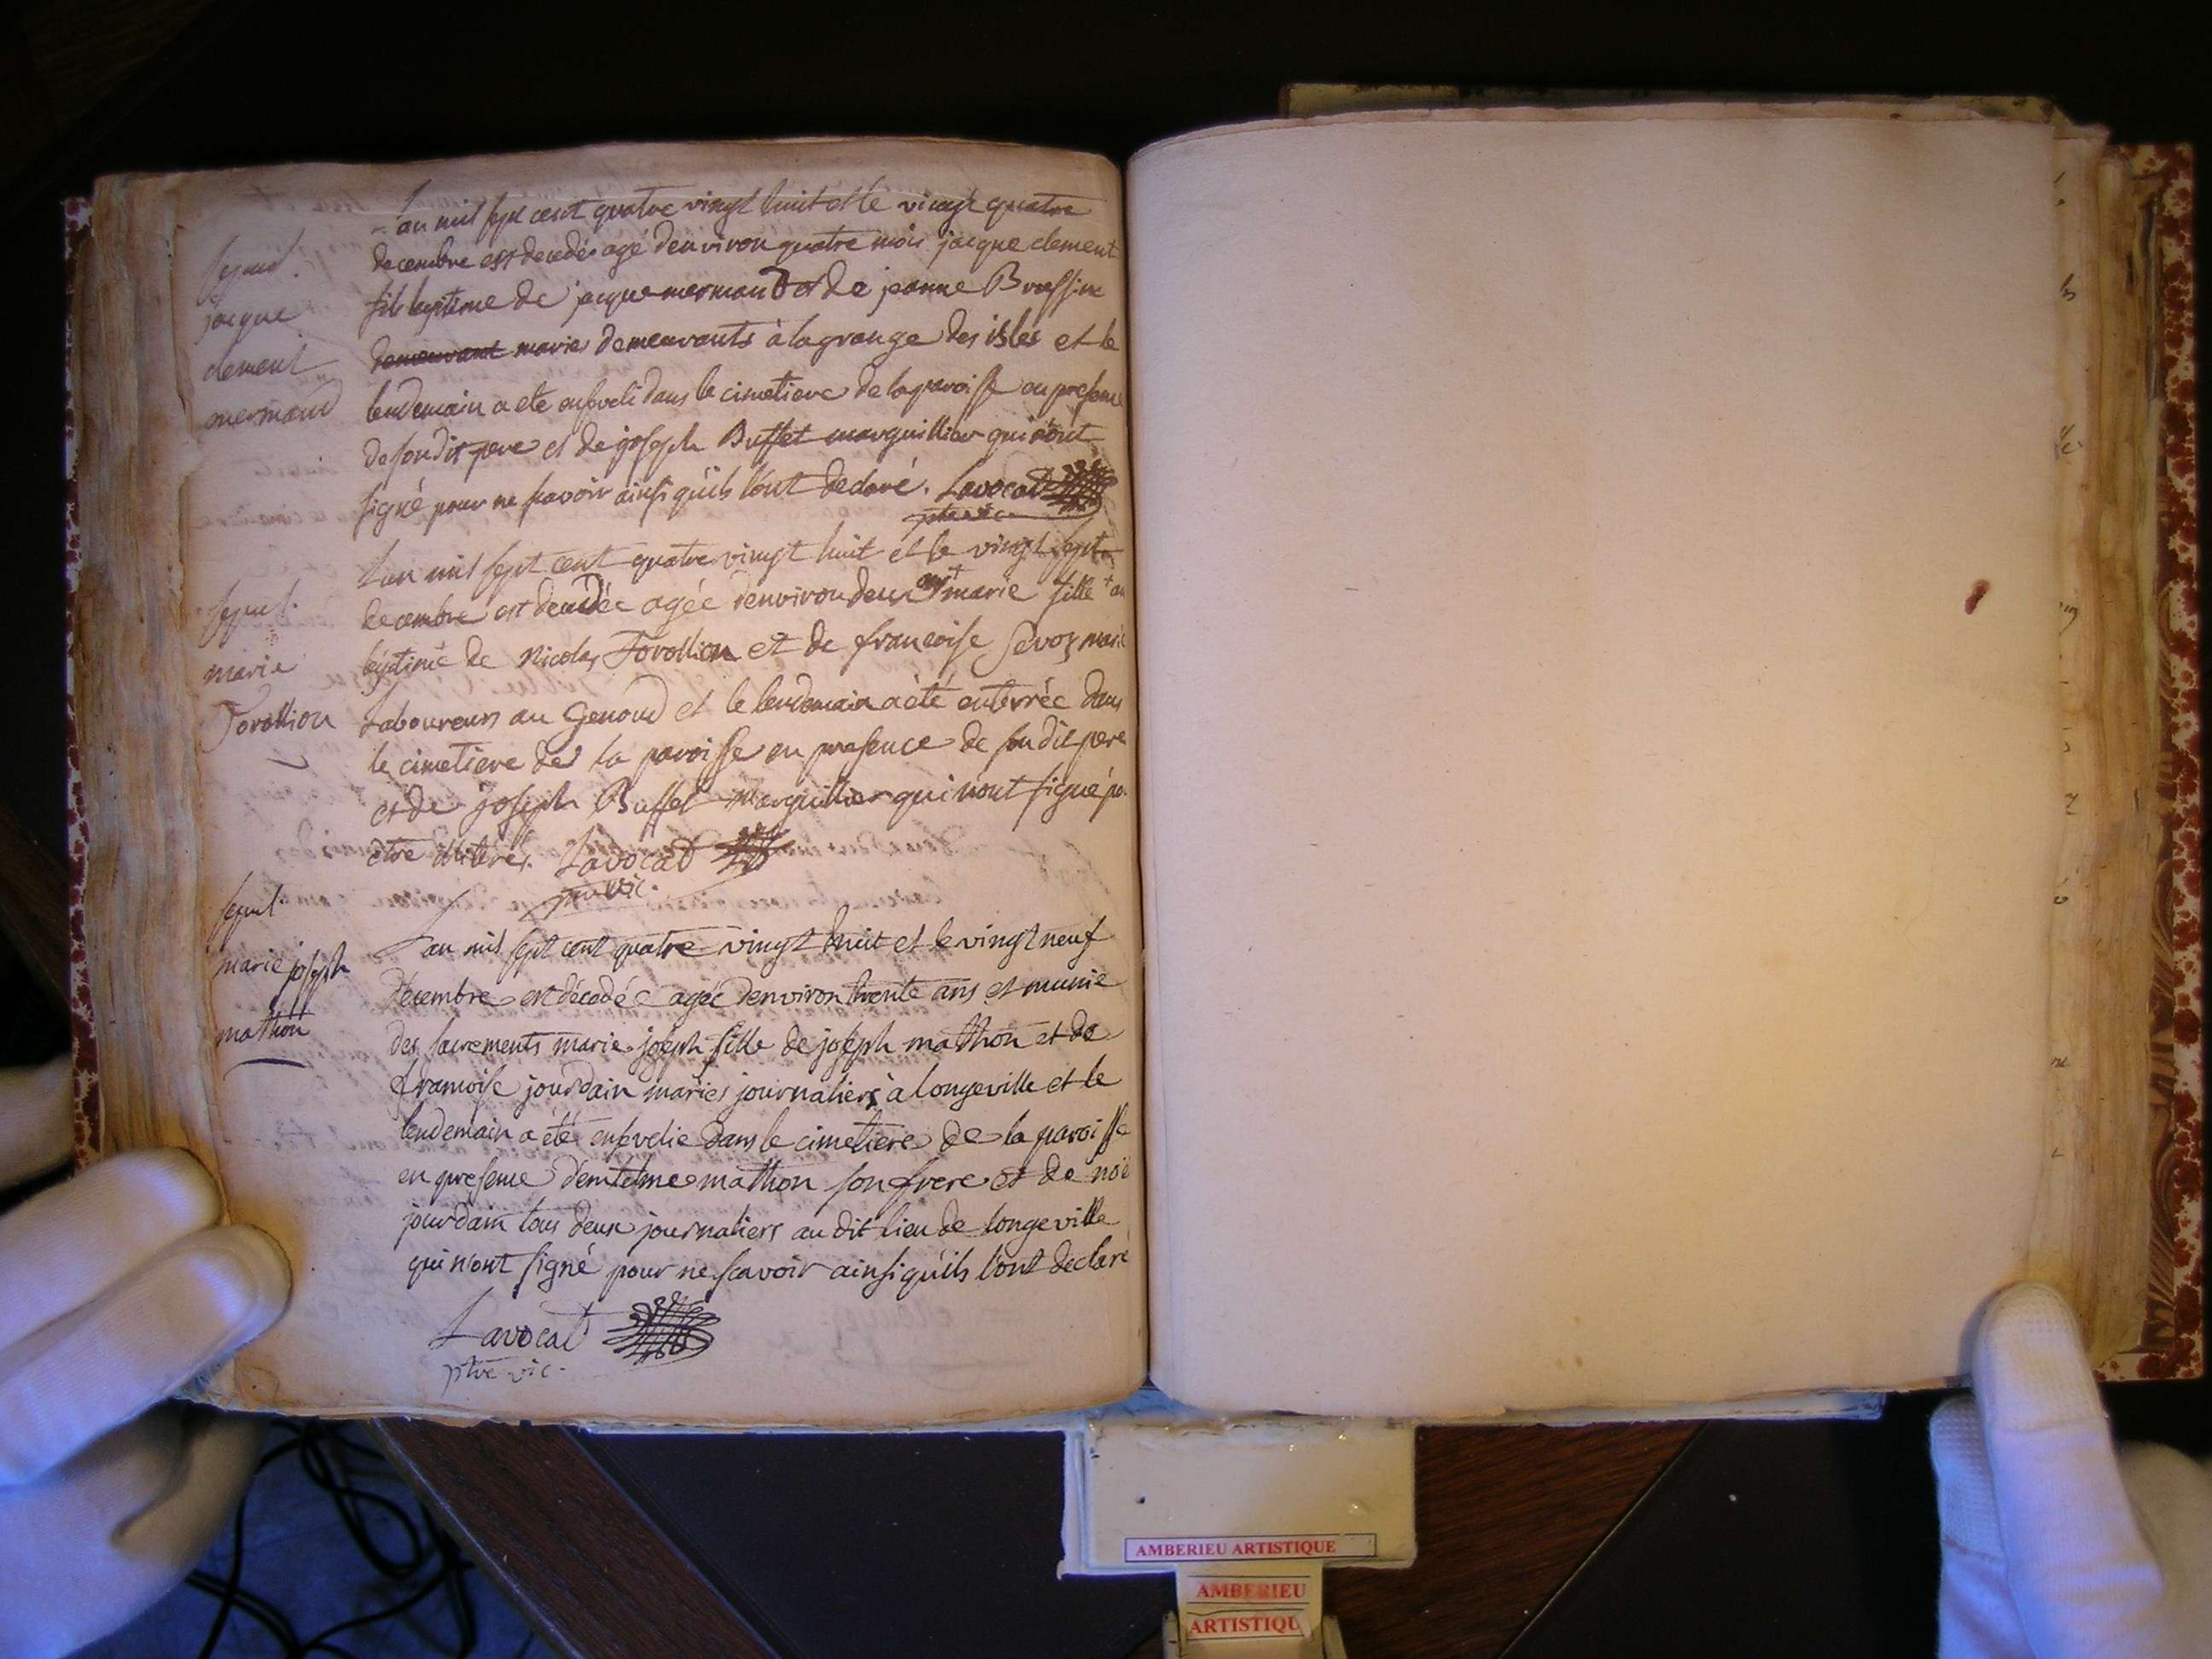 L'an mil sept cent quatre vingt huit et le vingt quatre
sepul.
decembre est decedé agé d'environ quatre mois jacque clement
jacque
fils legitime de jacque mermand et de jeanne
clement
demeurant mariés demeurants à la grange des isles et le
mermand
lendemain a eté enseveli dans le cimetiere de la paroisse en presence
de son dit pere et de joseph Buffet marguillier qui n'ont
signé pour ne scavoir ainsi qu'ils l'ont declaré. Lavocat
ptre vic.
L'an mil sept cent quatre vingt huit et le vingt sept
sepul.
decembre est decedée agée d'environ deux ans+ marie fille +
marie
legitime de Nicolas Torollion et de francoise Sevoz mariés
Torollion
Laboureurs au Genoud et le lendemain a été enterrée dans
le cimetiere de la paroisse en presence de son dit pere
et de joseph Buffet Marguillier qui n'ont signé po.
être illiterés. Lavocat
ptre vic.
sepul.
L'an mil sept cent quatre vingt huit et le vingt neuf
marie joseph
décembre est décedée agée d'environ trente ans et munie
mathon
des sacrements marie joseph fille de joseph mathon et de
francoise jourdain mariés journaliers à longeville et le
lendemain a été ensevelie dans le cimetiere de la paroisse
en presence d'entelme mathon son frere et de noë
jourdain tous deux journaliers au dit lieu de longeville
qui n'ont signé pour ne scavoir ainsi qu'ils l'ont declaré
Lavocat
ptre vic.
AMBERIEU ARTISTIQUE
AMBERIEU
ARTISTIQU